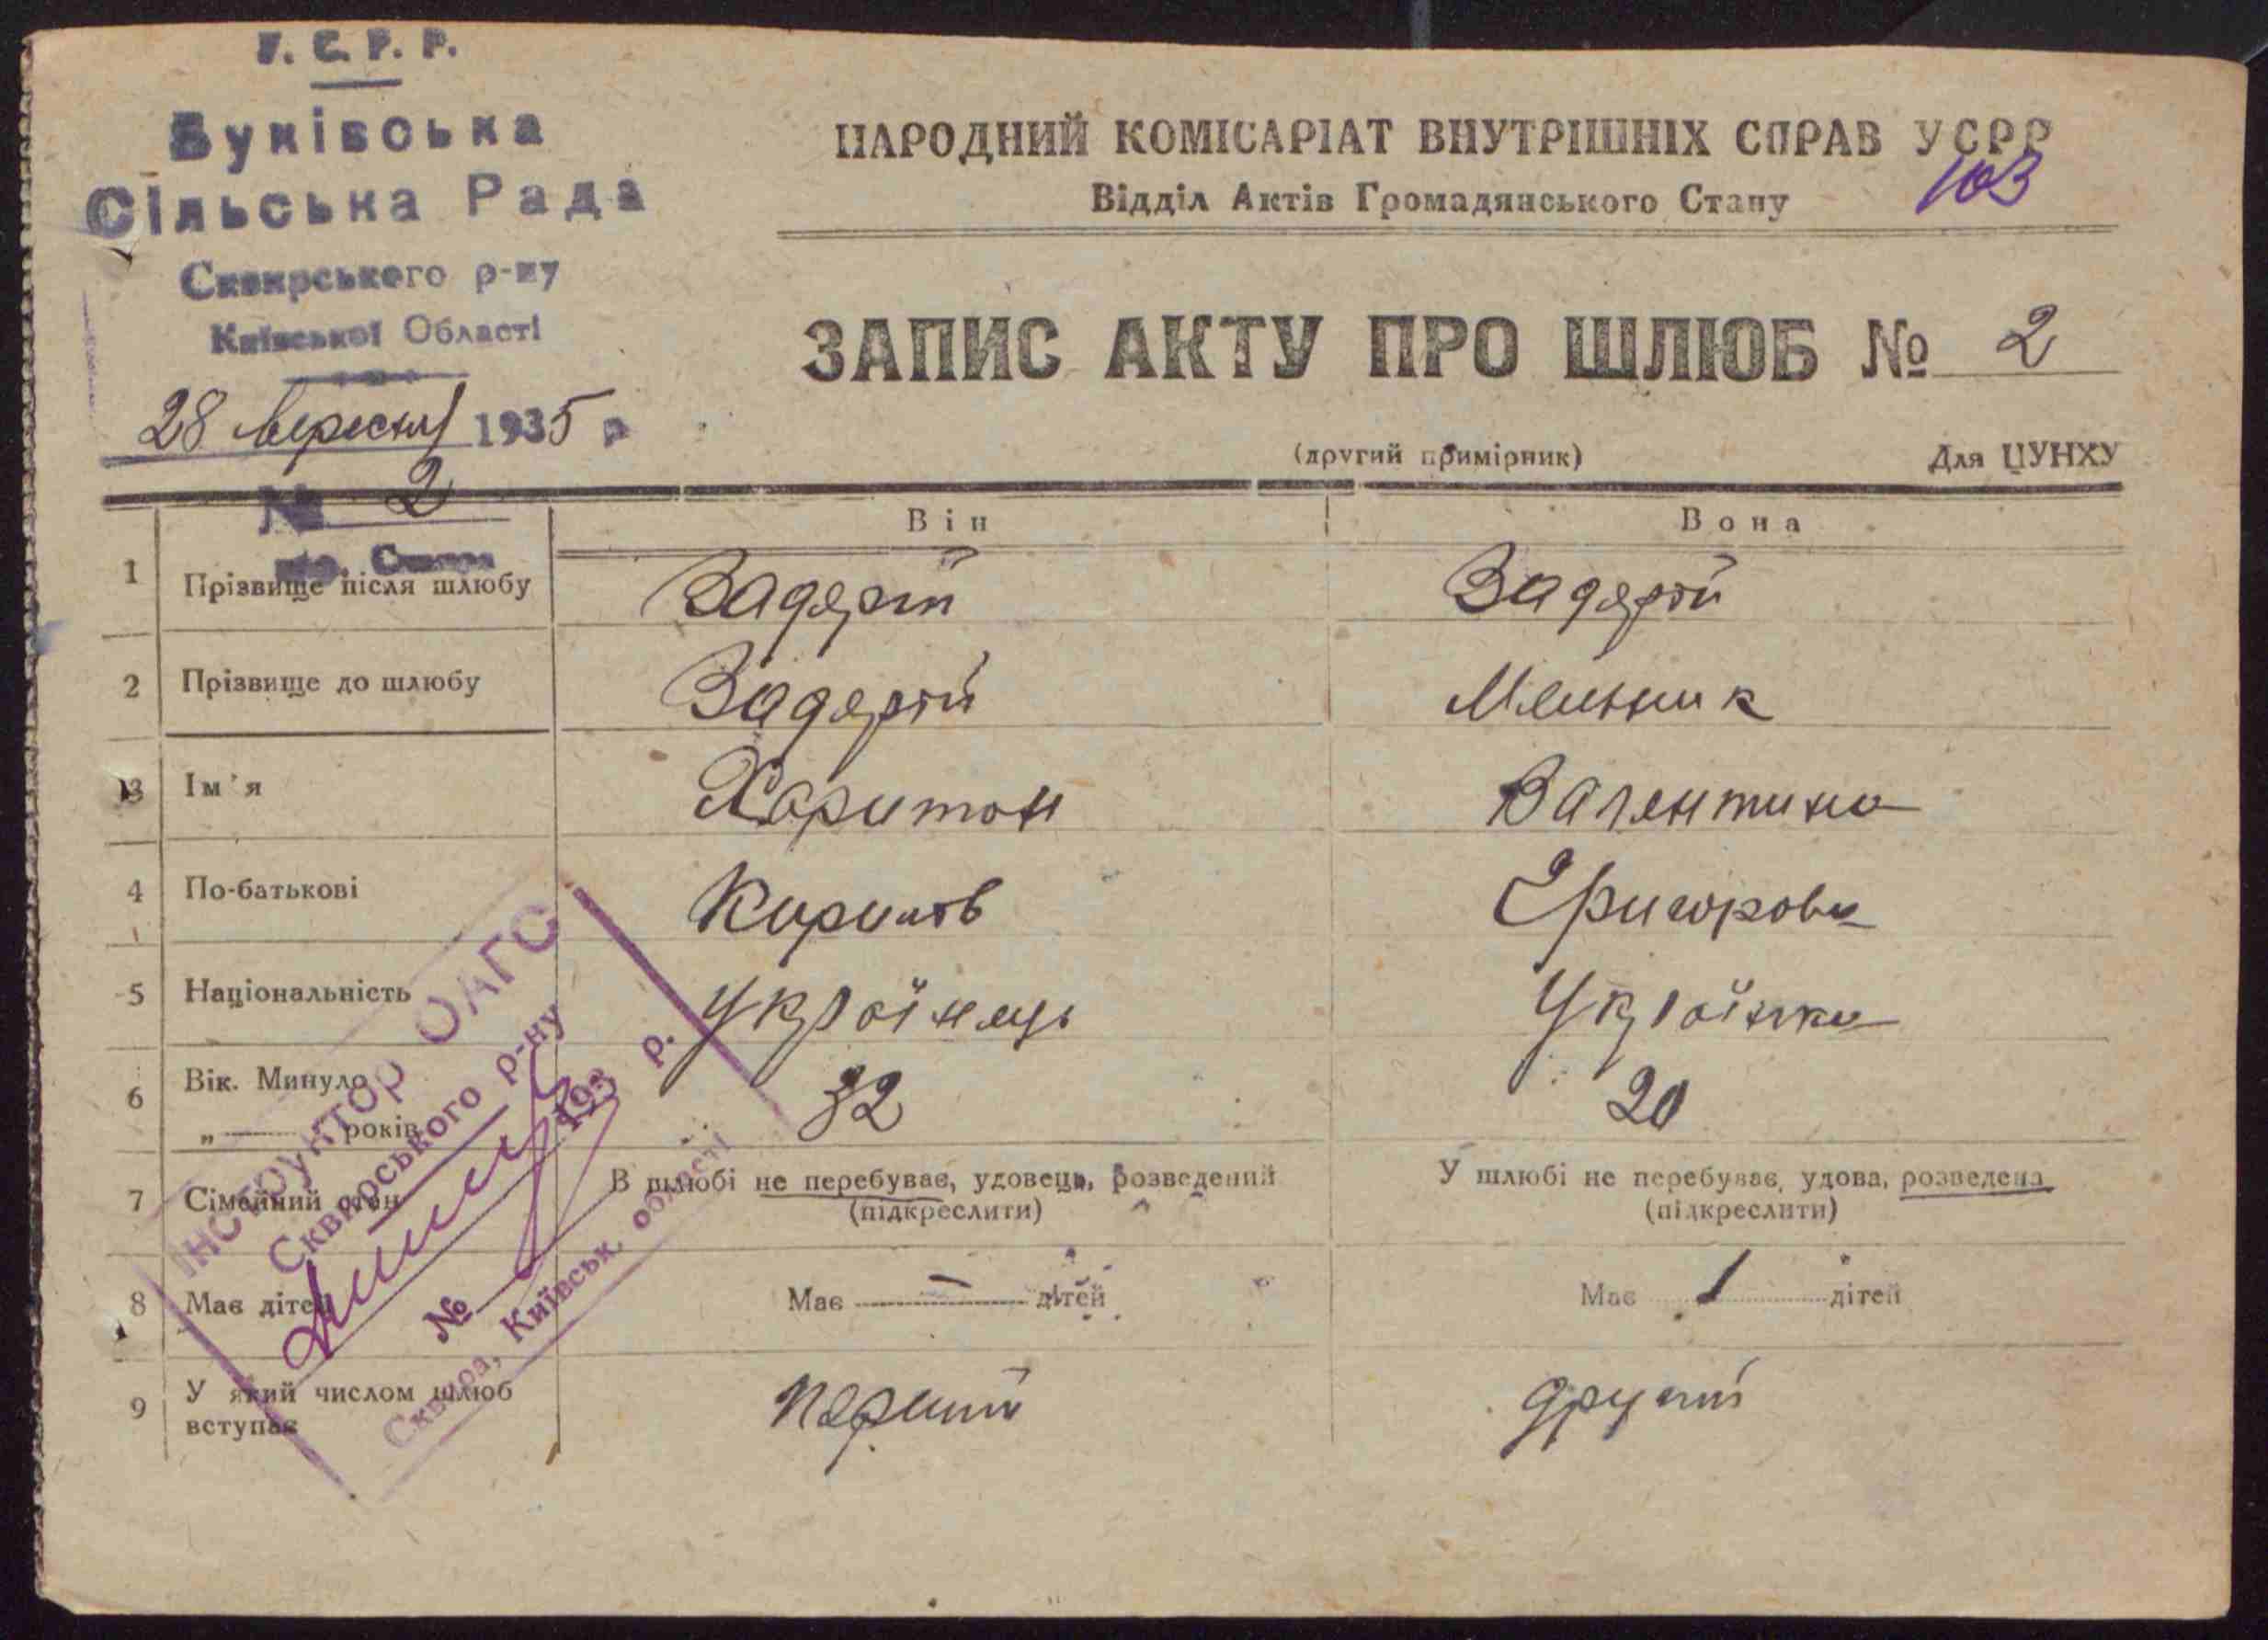 У. С. Р. Р.
Буківська
Сільська Рада
Сквирського р-ну
Київської Області
28 вересня 1935 р
№ 2
НАРОДНИЙ КОМІСАРІАТ ВНУТРІШНІХ СПРАВ УСРР
103
Відділ Актів Громадянського Стану
ЗАПИС АКТУ ПРО ШЛЮБ № 2
(другий примірник) Для ЦУНХУ
Він Вона
1 Прізвище після шлюбу Задерій Задерій
2 Прізвище до шлюбу Задерій Мельник
3 Ім'я Харитон Валентина
4 По-батькові Кирилов Григоровна
5 Національність Українець Українка
6 Вік. Минуло 32 20
„ років
7 Сімейний стан В шлюбі не перебуває, удовець, розведений У шлюбі не перебуває, удова, розведена
(підкреслити) (підкреслити)
8 Має дітей Має — дітей Має 1 дітей
9 У який числом шлюб вступає перший другий
ІНСТРУКТОР ОАГС
Сквирського р-ну
193 р.
№
Сквира, Київськ. області